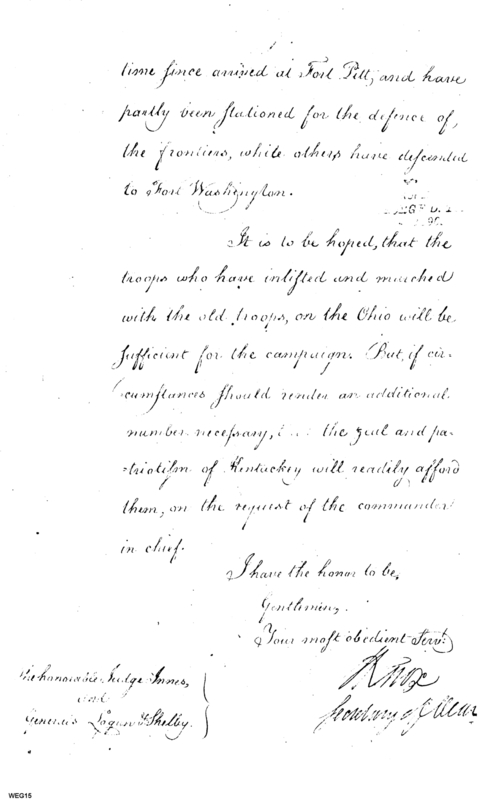 time since arrived at Fort Pitt, and have
partly been stationed for the defence of,
the frontiers, while others have descended
to Fort Washington.
It is to be hoped, that the
troops who have inlisted and marched
with the old troops, on the Ohio will be
sufficient for the campaign. But, if cir-
cumstances should render an additional
number necessary, the zeal and pa-
=triotism of Kentuckey will readily afford
them, on the request of the commander
in chief.
I have the honor to be,
Gentlemen,
Your most obedient Servt.
HKnox
Secretary of War
The honourable Judge Innes,
and
Generals Logan & Shelby.
WEG15